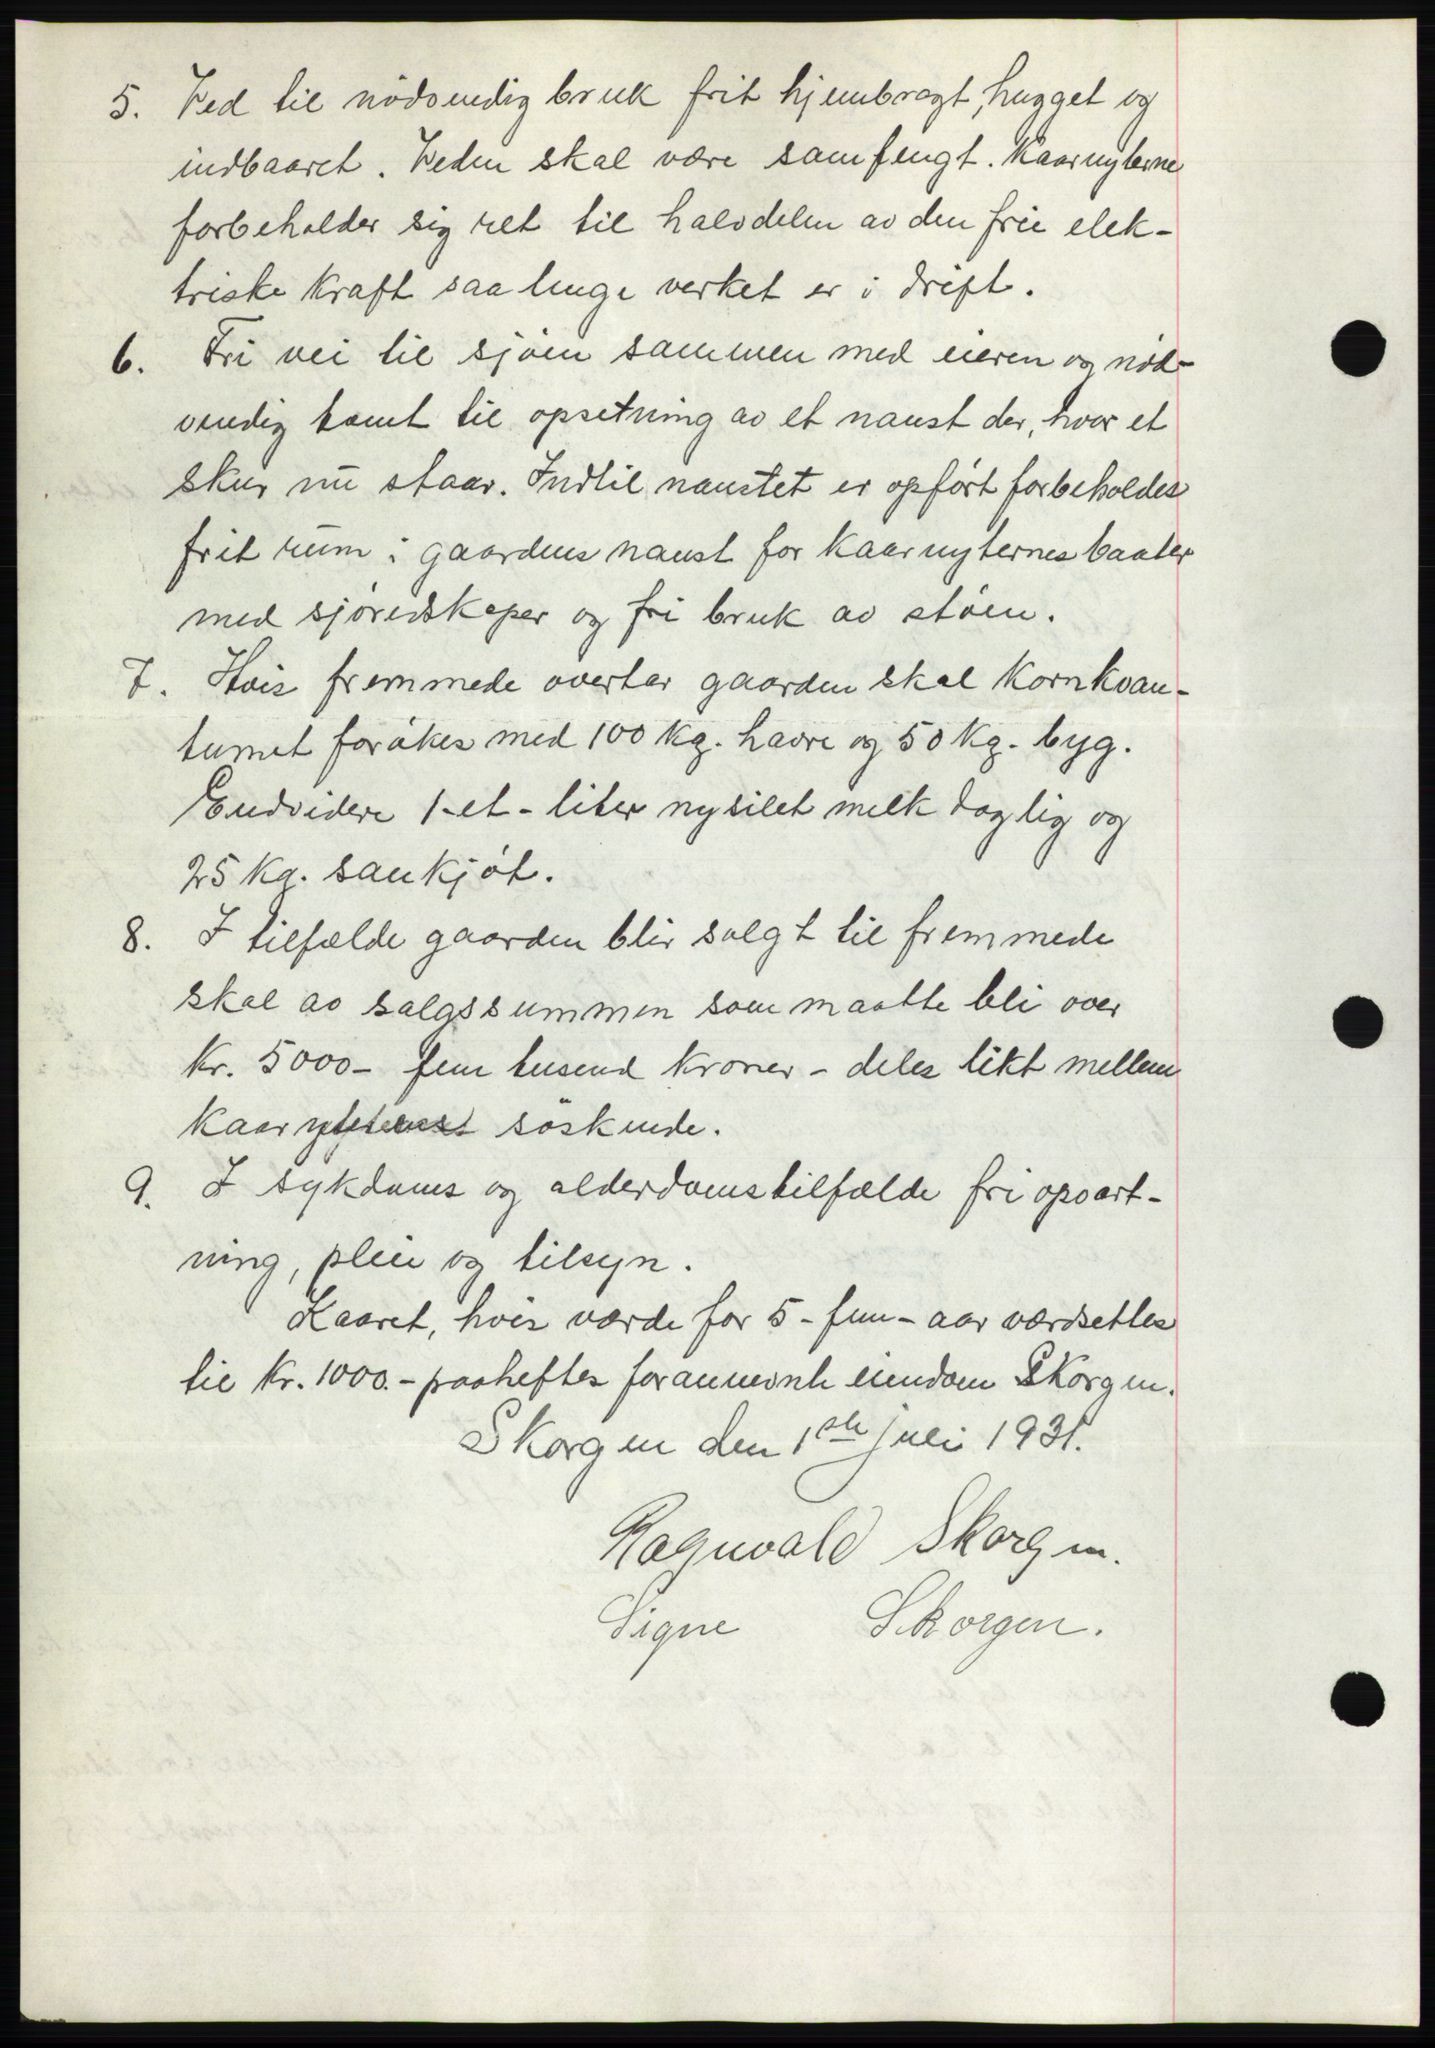 5. Ved til nödvendig bruk frit hjembragt, hugget og
indbaaret. Veden skal være samfengt. Kaarnyterne
forbeholder sig ret til halvdelen av den frie elek-
triske kraft saa lenge verket er i drift.
6. Fri vei til sjöen sammen med eieren og nöd-
vendig tomt til opsetning av et naust der, hvor et
skur nu staar. Indtil naustet er opfört forbeholdes
frit rum i gaardens naust for kaarnyternes baater
med sjöredskaper og fri bruk av stöen.
7. Hvis fremmede overtar gaarden skal kornkvan-
tumet forökes med 100 kg. havre og 50 kg. byg.
Endvidere 1-et- liter nysilet melk daglig og
25 kg. saukjöt.
8. I tilfælde gaarden blir solgt til fremmede
skal av salgssummen som maatte bli over
Kr. 5000- fem tusend kroner - deles likt mellem
kaaryterens söskende.
9. I sykdoms og alderdomstilfælde fri opvart-
ning, pleie og tilsyn.
Kaaret, hvis værde for 5 - fem - aar værdsettes
til Kr. 1000.- paaheftes forannevnte eiendom Skorgen.
Skorgen den 1ste juli 1931.
Ragnvald Skorgen.
Signe Skorgen.